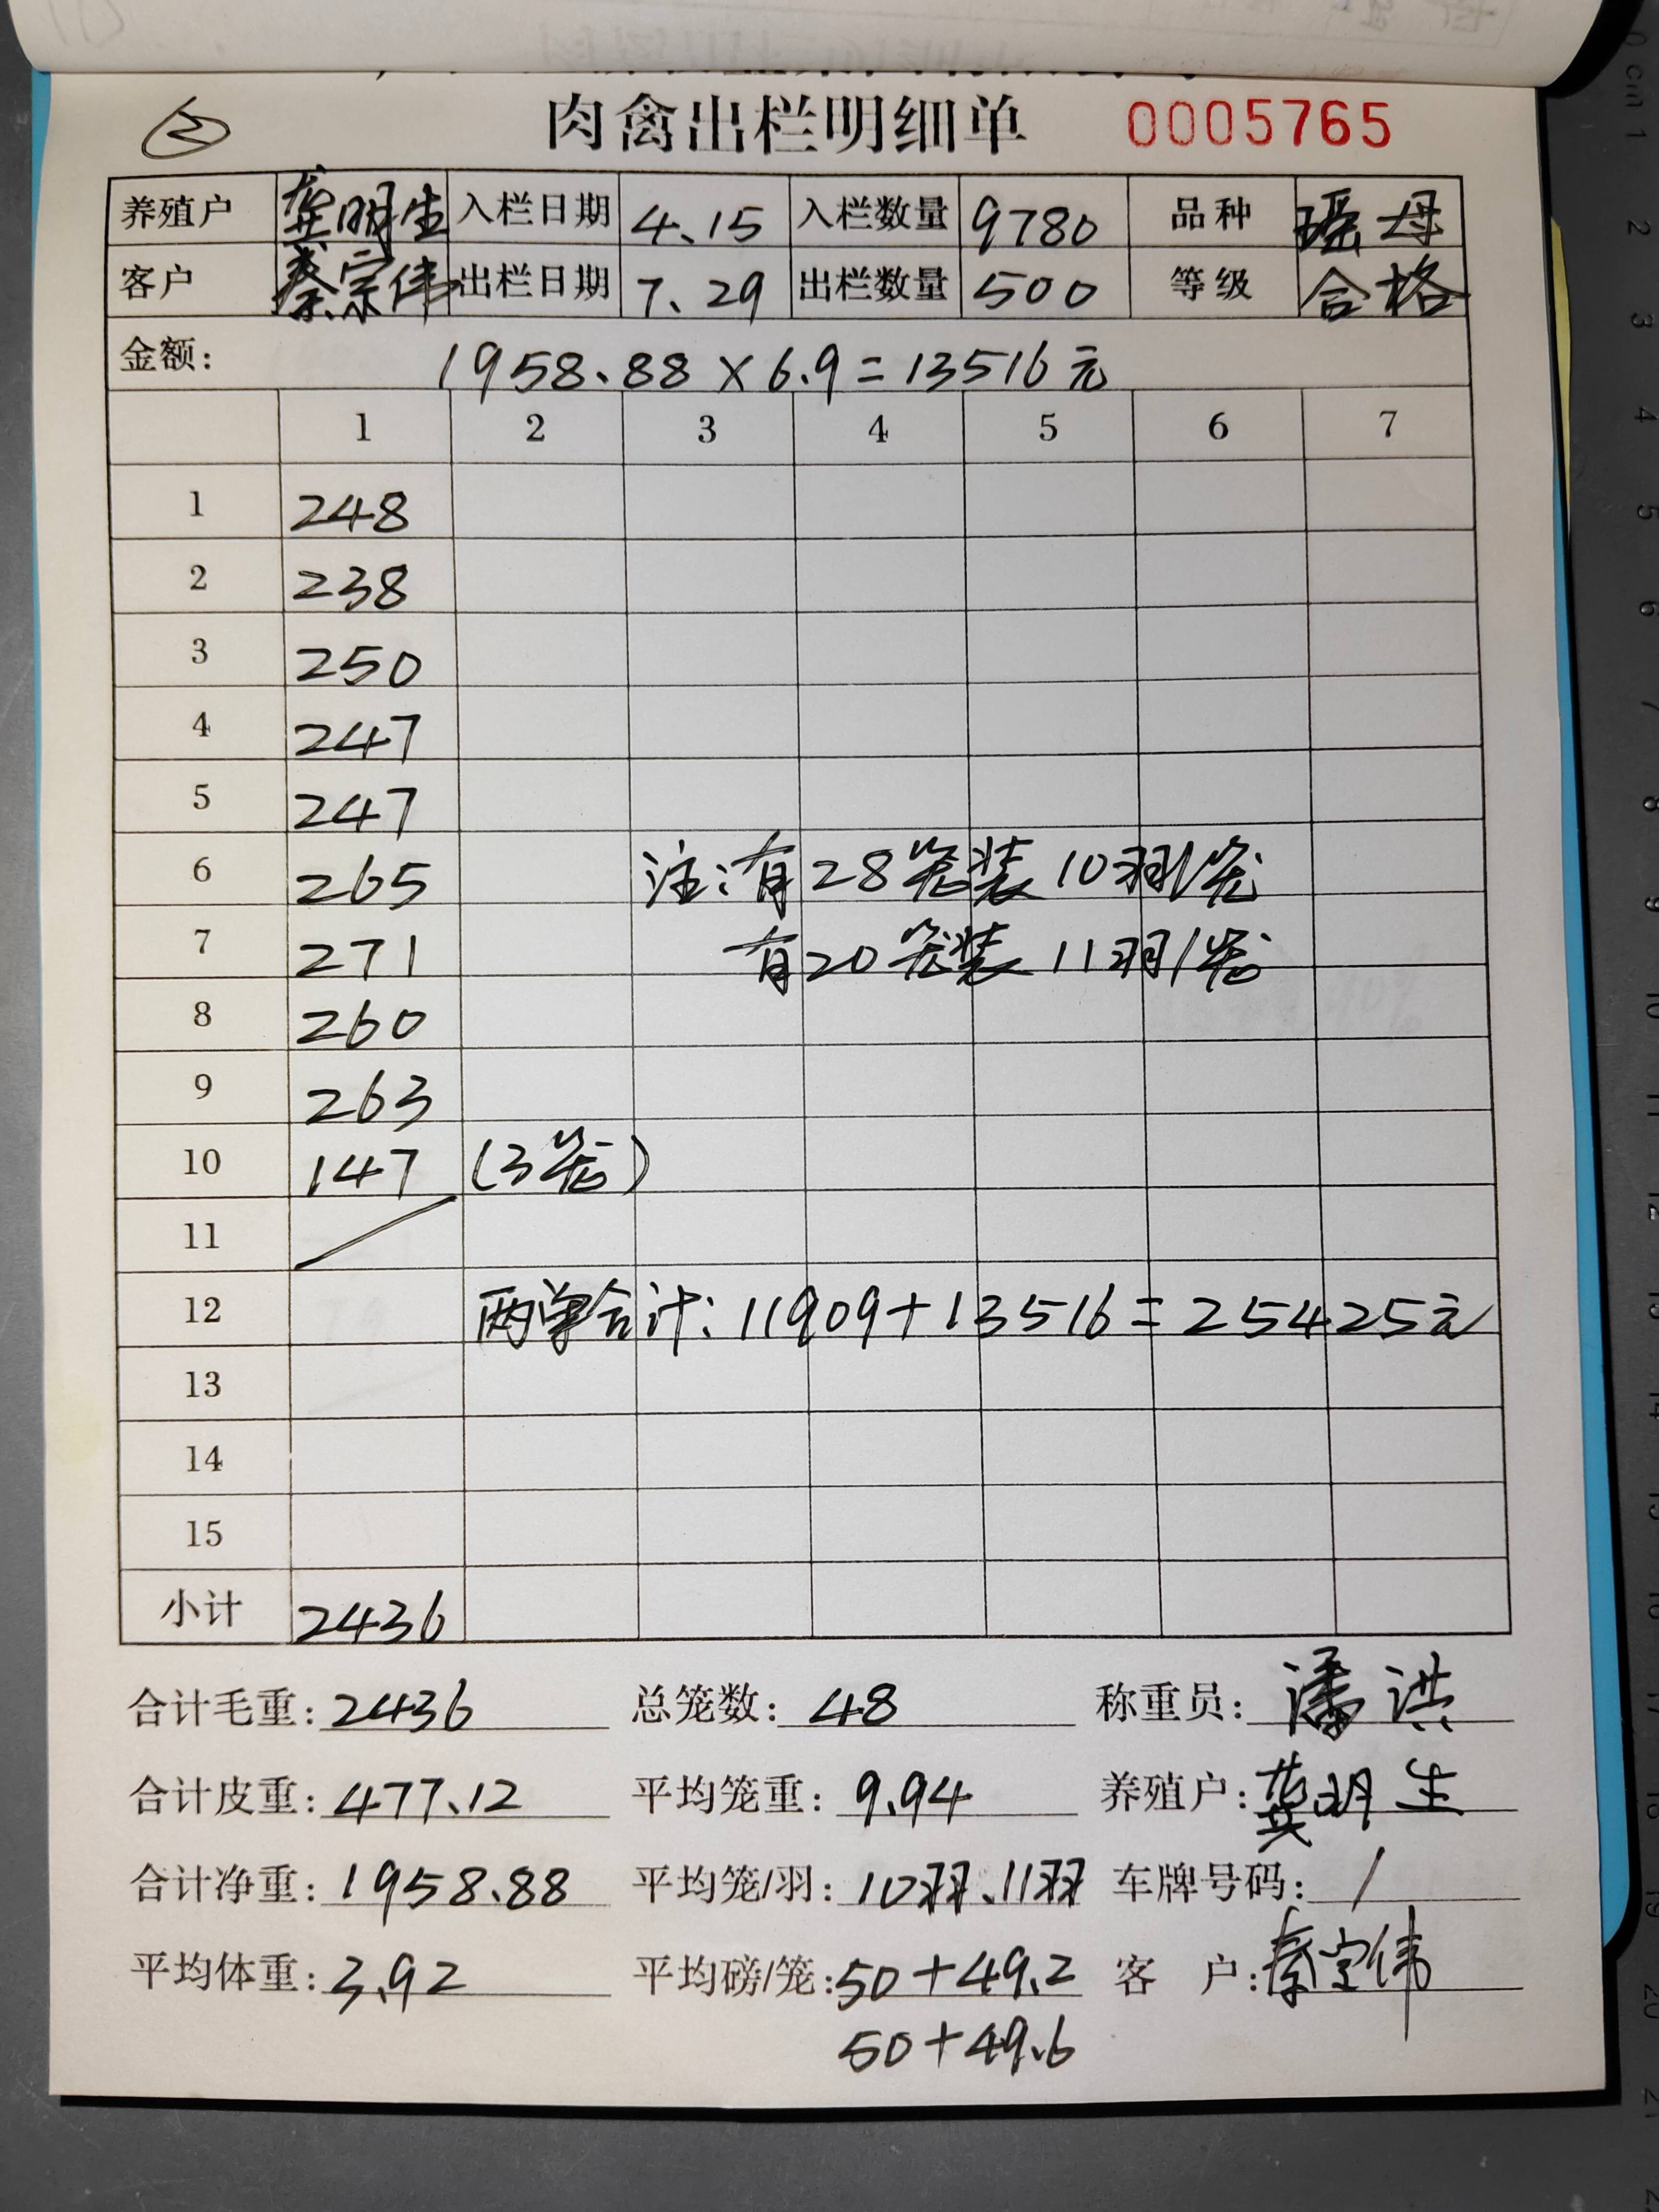 ② 肉禽出栏明细单 0005765
养殖户 龚明生 入栏日期 4.15 入栏数量 9780 品种 瑶母
客户 蔡宗伟 出栏日期 7.29 出栏数量 500 等级 合格
金额: 1958.88×6.9=13516元
1 2 3 4 5 6 7
1 248
2 238
3 250
4 247
5 247
6 265 注:有28笼装10羽/笼
7 271 有20笼装11羽/笼
8 260
9 263
10 147 (3笼)
11
12 两单合计:11909+13516=25425元
13
14
15
小计 2436
合计毛重:2436 总笼数:48 称重员:潘洪
合计皮重:477.12 平均笼重:9.94 养殖户:龚明生
合计净重:1958.88 平均笼/羽:10羽、11羽 车牌号码:/
平均体重:3.92 平均磅/笼:50+49.2 客 户:蔡宗伟
50+49.6
0 cm 1 2 3 4 5 6 7 8 9 10 11 12 13 14 15 16 17 18 19 20 21